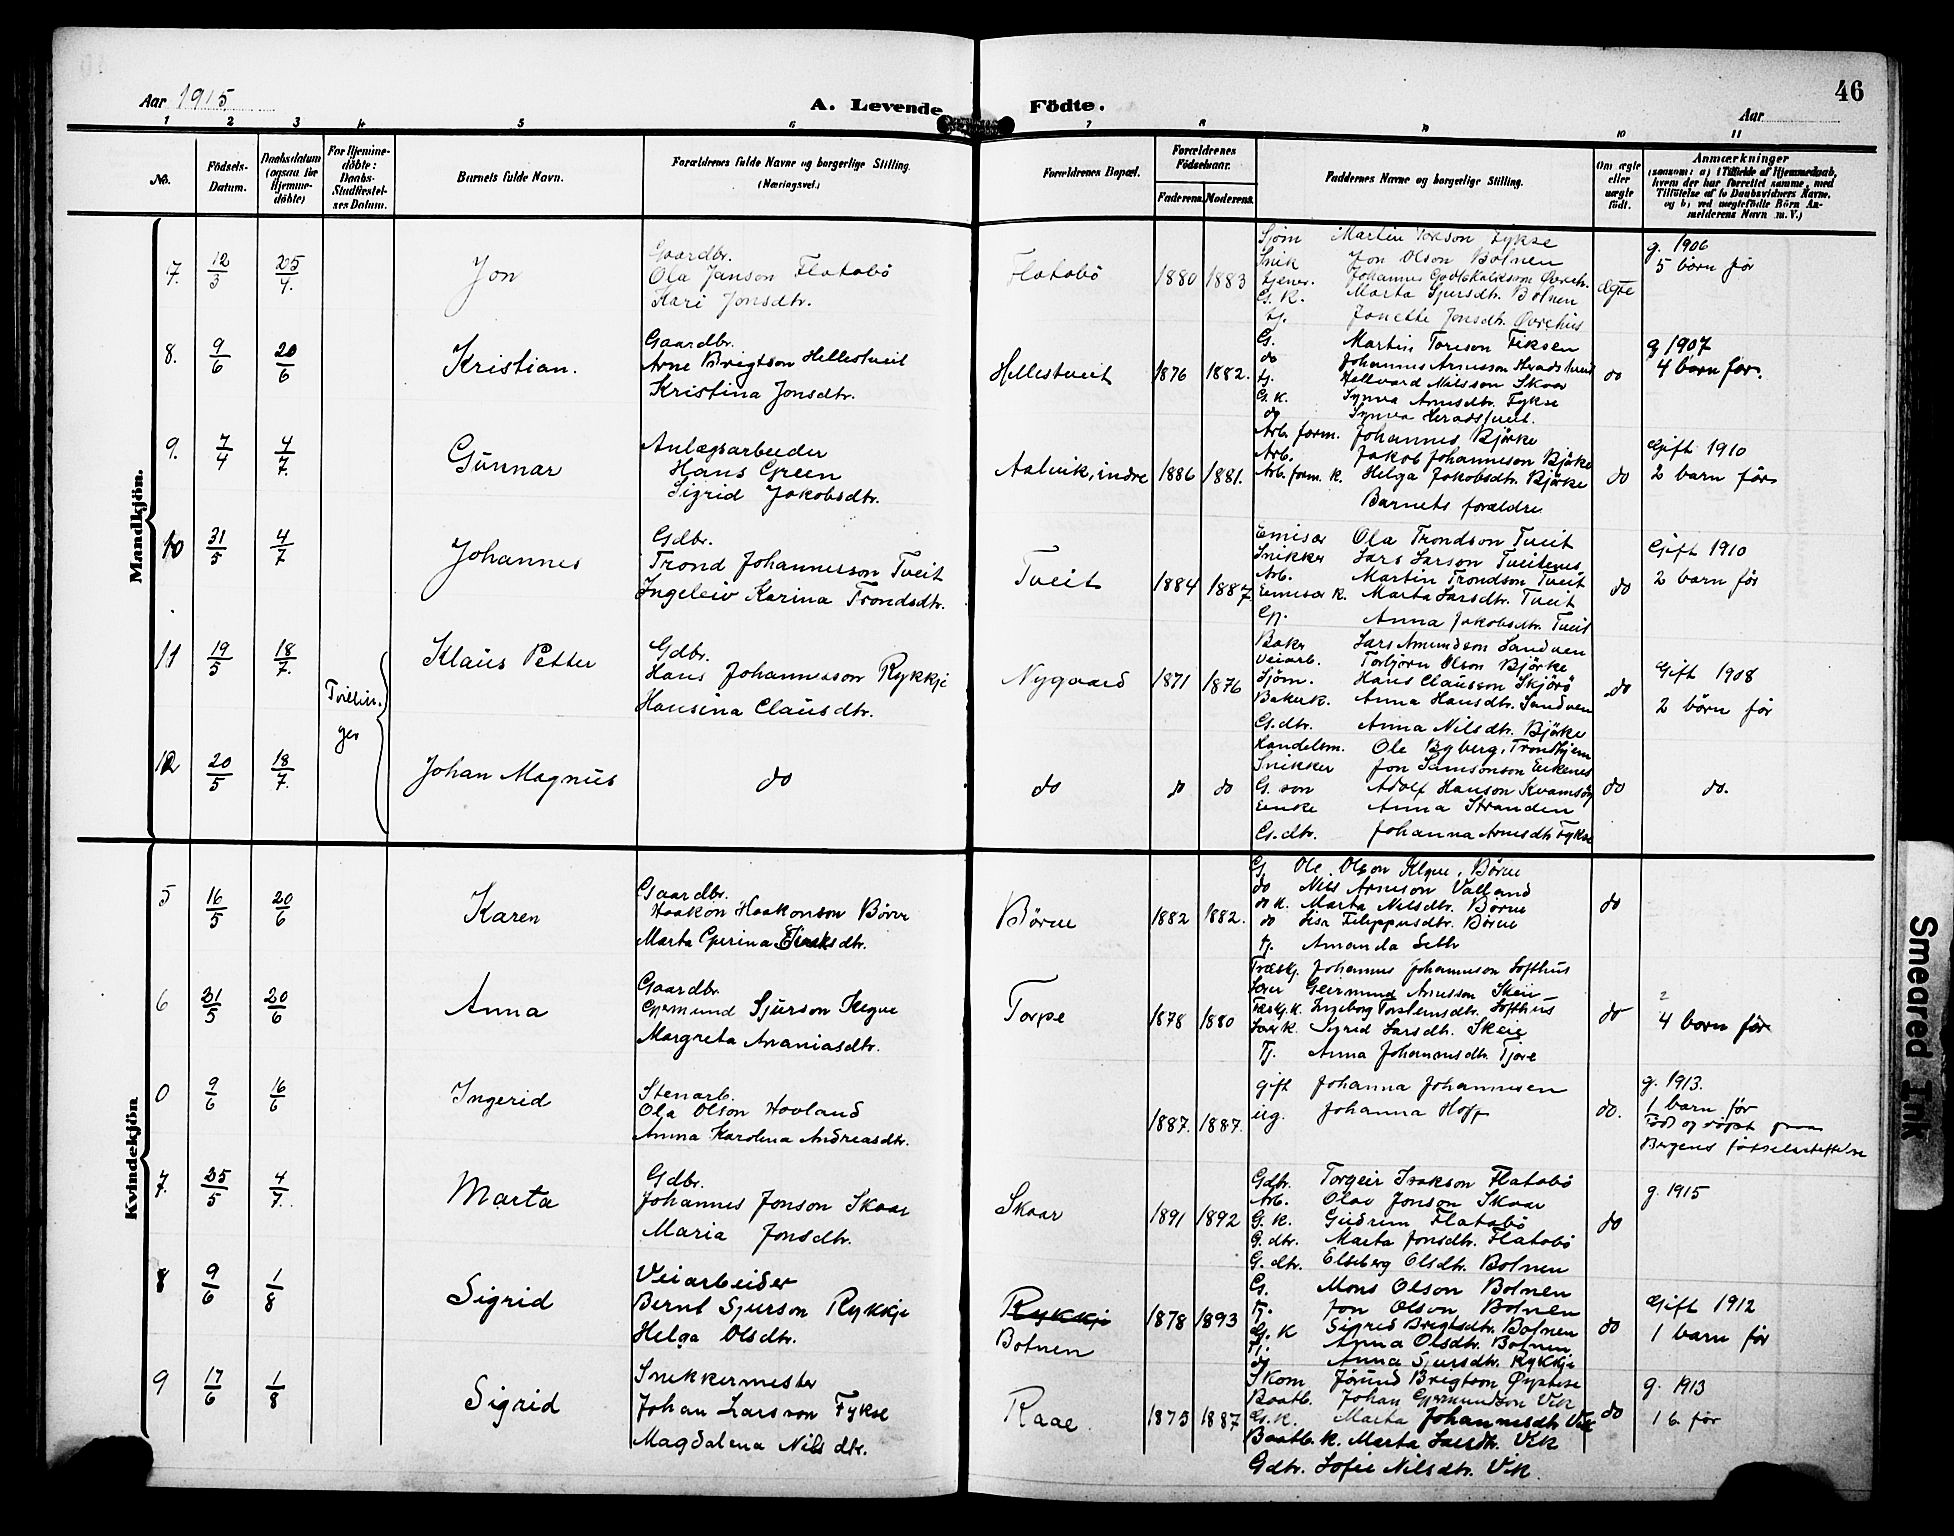 46
Aar 1915
A. Levende Födte.
Aar
1 2 3 4 5 6 7 8 9 10 11
No.
Födsels-Datum.
Daabsdatum (ogsaa for Hjemme-döbte)
For Hjemme-döbte: Daabs-Stadfæstel-ses Datum.
Barnets fulde Navn.
Forældrenes fulde Navne og borgerlige Stilling. (Næringsvei.)
Forældrenes Bopæl.
Forældrenes Födselsaar.
Faderens. Moderens.
Faddernes Navne og borgerlige Stilling.
Om ægte eller uægte födt.
Anmærkninger
(saasom: a) i Tilfælde af Hjemmedaab, hvem der har forrettet samme, med Tilföielse af to Daabsvidners Navne, og b) ved uægtefödte Börn An-melderens Navn m. V.)
Mandkjön.
7. 12/3 25/4. Jon
Gaardbr.
Ola Janson Flatabö
Kari Jonsdtr.
Flatabö 1880 1883
Sjöm Martin Torson Fykse
Snik Jon Olson Botnen
tjener. Johannes Godskalkson
G. K. Marta Sjursdtr. Botnen
tj. Jonette Jonsdtr. Övrehus
ægte
g. 1906
5 börn för
8. 9/6 20/6 Kristian.
Gaardbr.
Arne Brigtson Hellestveit
Kristina Jonsdtr.
Hellestveit 1876 1882.
G. Martin Toreson Fiksen
do Johannes Arneson Heradstveit
tj. Hallvard Nilsson Skaar
G. K. Synva Arnesdtr. Fykse
do Synva Heradstveit.
do
g. 1907
4 barn för.
9. 7/4 4/7. Gunnar
Anlægsarbeider
Hans Green
Sigrid Jakobsdtr.
Aalvik, indre 1886 1881.
Arb. form. Johannes Björke
Arb. Jakob Johanneson Björke
Arb. form. K. Helga Jakobsdtr. Björke
Barnets forældre
do
Gift 1910
2 barn för
10 31/5 4/7 Johannes
Gdbr.
Trond Johannesson Tveit
Ingeleiv Karina Trondsdtr.
Tveit 1884 1887
Emisær Ola Trondson Tveit
Snikker Lars Larson Tveitenes
Arb. Martin Trondson Tveit
Emisær K. Marta Larsdtr. Tveit
Anna Jakobsdtr. Tveit
do
Gift 1910
2 barn för
11 19/5 18/7. Tvillin-ger Klaus Petter
Gdbr.
Hans Johannesson Rykkje
Hansina Clausdtr.
Nygaard 1871 1876
Baker Lars Amundson Sandven
Veiarb. Torbjörn Olson Bjørke
Sjöm. Hans Clausson Skjörö
Baker k. Anna Hansdtr. Sandven
G. dtr. Anna Nilsdtr. Bjørke
do
Gift 1908
2 börn för
12 20/5 18/7. Johan Magnus
do do do do
Handelsm. Ole Byberg, Trondhjem
Snikker Jon Samsonson Eikenes
G. son Adolf Hanson Kvamsöy
enke Anna Stranden
G. dtr. Johanna Arnesdtr Fykse
do do.
Kvindekjön
5 16/5 20/6 Karen
Gaardbr.
Haakon Haakonson Börve
Marta Gurina Eiriksdtr.
Börve 1882 1882.
G. Ole Olson Børve
do Nils Arneson Valland
do K. Marta Nilsdtr. Børve
do Lisa Filippusdtr. Børve
tj. Amanda
do
6 31/5 20/6 Anna
Gaardbr.
Germund Sjurson
Margreta Ananiasdtr.
Torpe 1878 1880
Johannes Johanneson Lofthus
Geirmund Arnesson Skeie
Ingeborg Torsteinsdtr. Lofthus
Sigrid Larsdtr. Skeie
Tj. Anna Johannesdtr.
do
4 born för
0 9/6 16/6 Ingerid
Stenarb.
Ola Olson Hovland
Anna Karolina Andreasdtr.
1887. 1887.
gift Johanna Johannesen
ug. Johanna Hoff
do.
g. 1913.
1 barn för
Född og döpt paa
Bergens födselsstiftelse
7. 25/5 4/7. Marta
Gdbr.
Johannes Jonson Skaar
Maria Jonsdtr.
Skaar 1891 1892
Gdbr. Torgeir Isakson Flatabö
Arb. Olav Jonson Skaar
G. K. Gudrun Flatabö
G. dtr. Marta Jonsdtr. Flatabö
G. dtr. Elseberg Olsdtr. Botnen
do
g. 1915
8 9/6 1/8 Sigrid
Veiarbeider
Bernt Sjurson Rykkje
Helga Olsdtr.
Rykkje
Botnen 1878 1893
G. Mons Olson Botnen
tj. Jon Olson Botnen
G. K Sigrid Brigtsdtr. Botnen
tj. Anna Olsdtr. Botnen
do Anna Sjursdtr. Rykkje
do
Gift 1912
1 barn för
9 17/6 1/8 Sigrid
Snekkermester
Johan Larsson Fykse
Magdalena Nilsdtr.
Raae. 1875 1887
Skom Jörund Brigtson Öystese
Baatb. Johan Germundson Vik
G. K. Marta Johannesdtr Vik
Baatb. K. Marta Larsdtr. Vik
Gdtr. Sofie Nilsdtr. Vik.
do
g. 1913
1 b. för
Smeared Ink